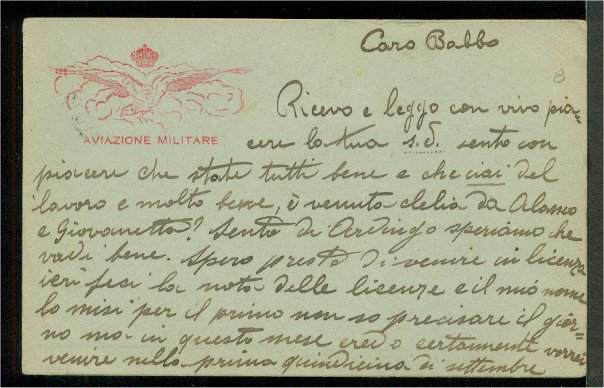 Caro Babbo
Ricevo e leggo con vivo pia=
AVIAZIONE MILITARE
cere la tua s.d. sento con
piacere che state tutti bene e che ciai del
lavoro e molto bene, è venuta clelia da
e Giovanetta? Sento di Ardingo speriamo che
vadi bene. Spero presto di venire in licenza
ieri feci la nota delle licenze e il mio nome
lo misi per il primo non so precisare il gior=
no ma in questo mese credo certamente vorrei
venire nella prima quindicina di settembre